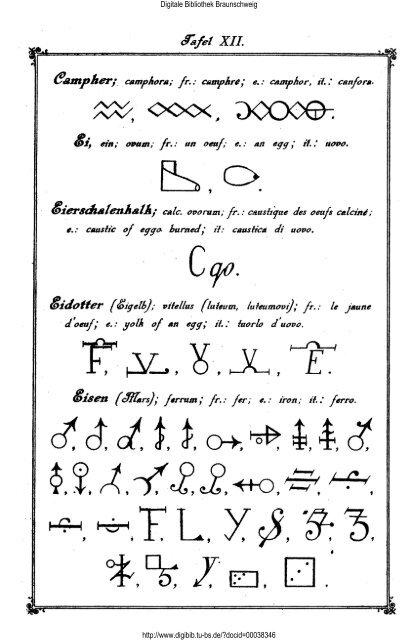 Digitale Bibliothek Braunschweig
Tafel XII.
Campher; camphora; fr.: camphre; e.: camphor, it.: canfora.
Ei, ein; ovum; fr.: un oeuf; e.: an egg; it.: uovo.
Eierschalenkalk; calc. ovorum; fr.: caustique des oeufs calciné;
e.: caustic of eggs burned; it: caustica di uovo.
Cqo.
Eidotter (Eigelb); vitellus (luteum, luteumovi); fr.: le jaune
d'oeuf; e.: yolk of an egg; it.: tuorlo d'uovo.
Eisen (Mars); ferrum; fr.: fer; e.: iron; it.: ferro.
http://www.digibib.tu-bs.de/?docid=00038346